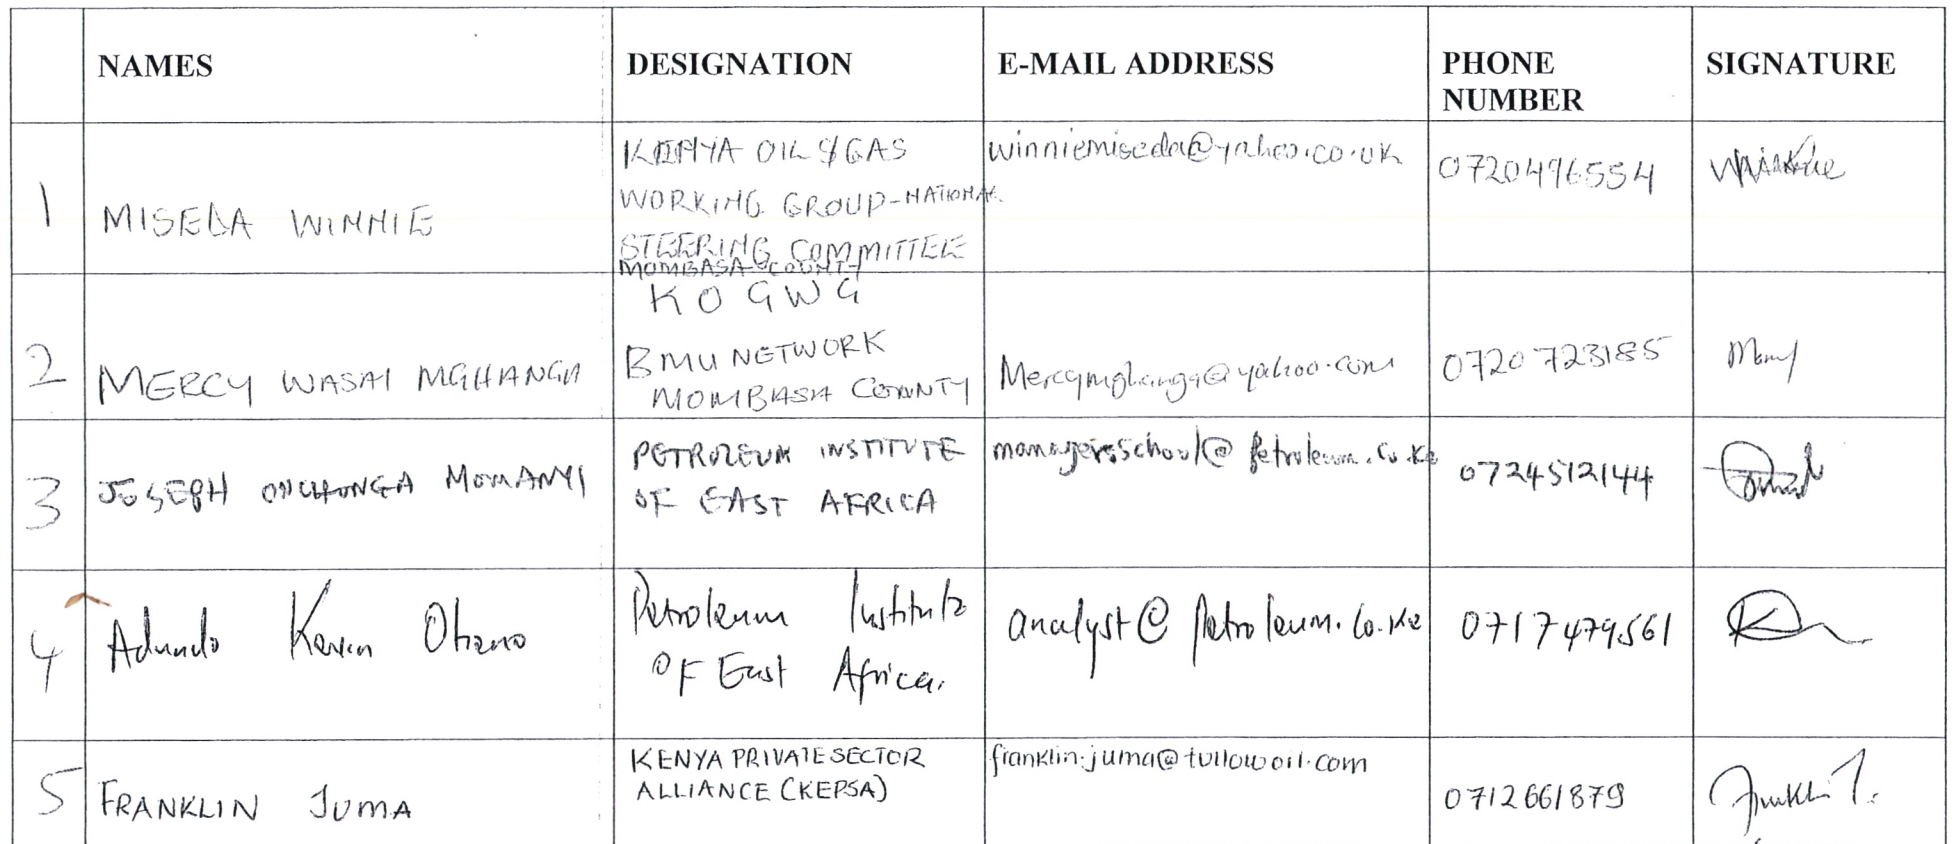 NAMES DESIGNATION E-MAIL ADDRESS PHONE NUMBER SIGNATURE
1 MISEDA WINNIE
KENYA OIL & GAS
WORKING GROUP-NATIONAL
STEERING COMMITTEE
MOMBASA COUNTY
winniemiseda@yahoo.co.uk
0720496554
Winnie
2 MERCY WASAI MGHANGA
KOGWG
BMU NETWORK
MOMBASA COUNTY
Mercymghanga@yahoo.com
0720723185
3 JOSEPH ONCHONGA MOMANYI
PETROLEUM INSTITUTE
OF EAST AFRICA
managersschool@petroleum.co.ke
0724512144
4 Adundo Kevin Otieno
Petroleum Institute
OF East Africa.
analyst@petroleum.co.ke
0717479561
5 FRANKLIN JUMA
KENYA PRIVATE SECTOR
ALLIANCE (KEPSA)
franklin.juma@tullowoil.com
0712661879